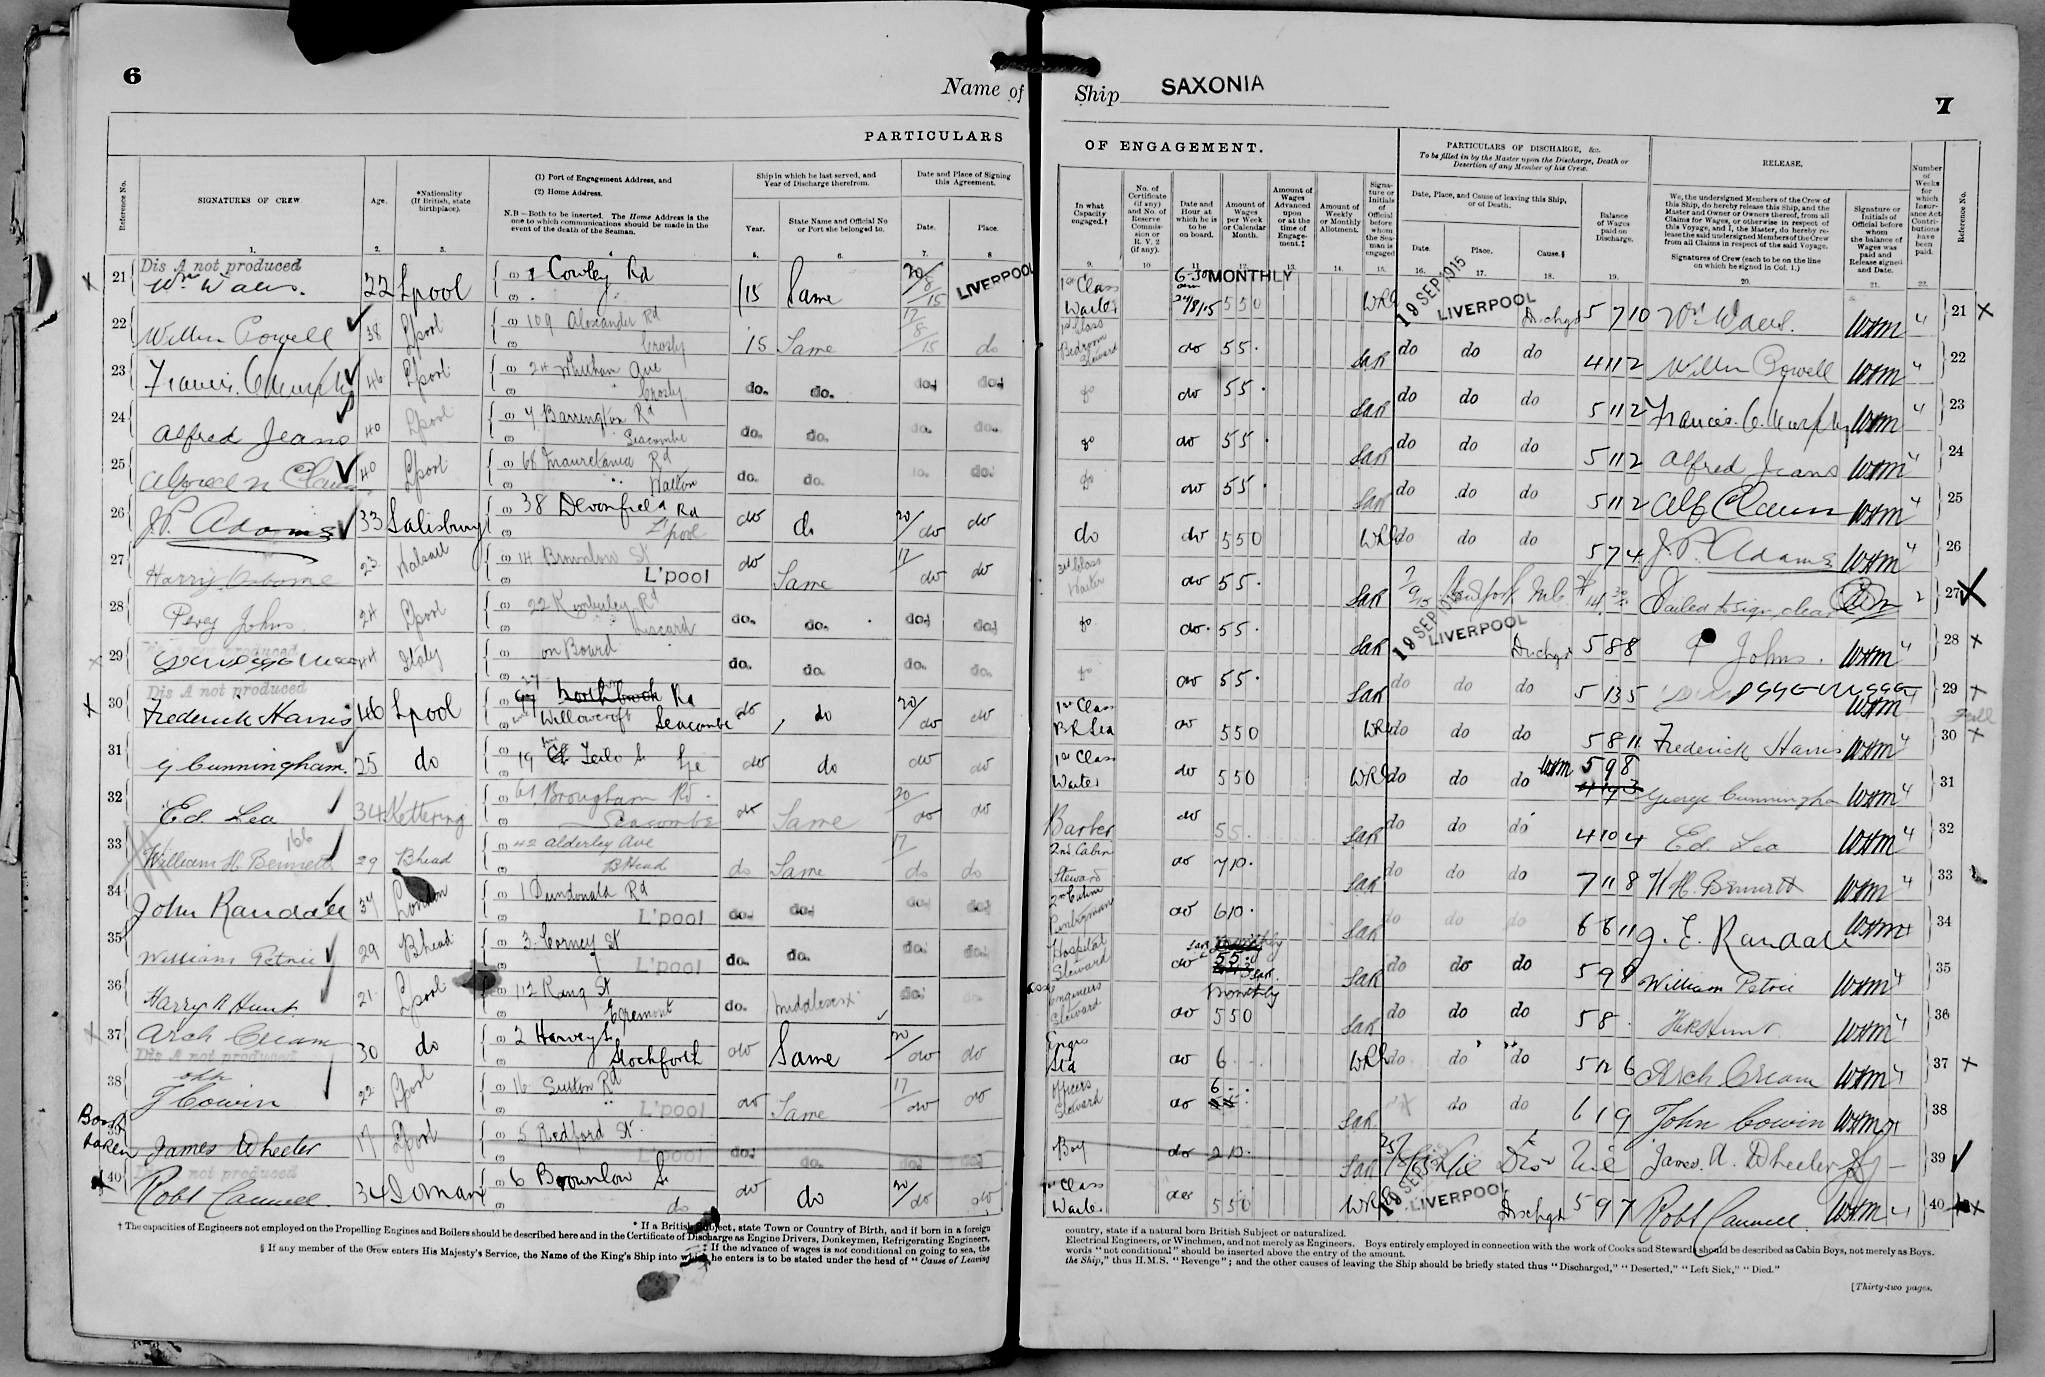 6
Name of
Ship SAXONIA
7
PARTICULARS
OF ENGAGEMENT.
PARTICULARS OF DISCHARGE, &c.
To be filled in by the Master upon the Discharge, Death or Desertion of any Member of his Crew.
RELEASE.
Reference No.
SIGNATURES OF CREW.
Age.
*Nationality (If British, state birthplace).
(1) Port of Engagement Address, and
(2) Home Address.
N.B.—Both to be inserted. The Home Address is the one to which communications should be made in the event of the death of the Seaman.
Ship in which he last served, and Year of Discharge therefrom.
Year.
State Name and Official No or Port she belonged to.
Date and Place of Signing this Agreement.
Date.
Place.
In what Capacity engaged.†
No. of Certificate (if any) and No. of Reserve Commission or R. V. 2 (if any).
Date and Hour at which he is to be on board.
Amount of Wages per Week or Calendar Month.
Amount of Wages Advanced upon or at the time of Engagement.‡
Amount of Weekly or Monthly Allotment.
Signature or Initials of Official before whom the Seaman is engaged
Date, Place, and Cause of leaving this Ship, or of Death.
Date.
Place.
Cause.§
Balance of Wages paid on Discharge.
We, the undersigned Members of the Crew of this Ship, do hereby release this Ship, and the Master and Owner or Owners thereof, from all Claims for Wages, or otherwise in respect of this Voyage, and I, the Master, do hereby release the said undersigned Members of the Crew from all Claims in respect of the said Voyage.
Signatures of Crew (each to be on the line on which he signed in Col. 1.)
Signature or Initials of Official before whom the balance of Wages was paid and Release signed and Date.
Number of Weeks for which Insurance Act Contributions have been paid.
Reference No.
21 Dis A not produced 22 Lpool Cowley Rd 15 Same 20/8/15 LIVERPOOL 1st Class Waiter 6-30 am MONTHLY 550 19 SEP 1915 LIVERPOOL Dischgd 5 7 10 WHM 4 21
22 Powell 38 Lpool 109 Alexander Rd Crosby 15 Same 17/8/15 do 1st Class Bedroom Steward do 55 SAR do do do 4 11 2 Powell WHM 4 22
23 Francis C Murphy 46 Lpool 24 Ave Crosby do. do. do. do. do do 55 SAR do do do 5 11 2 Francis C. Murphy WHM 4 23
24 Alfred Jeans 40 Lpool 4 Barrington Rd Seacombe do. do. do. do. do do 55 SAR do do do 5 11 2 Alfred Jeans WHM 4 24
25 40 Lpool 68 Mauretania Rd Walton do. do. do. do. do do 55 SAR do do do 5 11 2 Alf WHM 4 25
26 J.P. Adams 33 Salisbury 38 Devonfield Rd L'pool do do 20/do do do do 550 do do do 5 7 4 J.P. Adams WHM 4 26
27 Harry Osborne 23 Walsall 14 Brownlow St L'pool do Same 17/do do 3rd Class Waiter do 55 SAR Failed to sign clear 2 27
28 Percy Johns 24 Lpool 22 Kimberley Rd Liscard do. do. do. do. do do 55 SAR 19 SEP 1915 LIVERPOOL Dischgd 5 8 8 P Johns. WHM 4 28
29 Dis A not produced 44 Italy on Board do. do. do. do. do do 55 SAR do do do 5 13 5 WHM 4 29
30 Dis A not produced Frederick Harris 46 Lpool Willowcroft Rd Seacombe do do 20/do do 1st Class do 550 do do do 5 8 11 Frederick Harris WHM 4 30
31 G Cunningham. 25 do 19 Teilo St do do do do 1st Class Waiter do 550 do do do WHM 5 9 8 George Cunningham WHM 4 31
32 Ed. Lea 34 Kettering 61 Brougham Rd Seacombe do Same 20/do do Barber do 55 SAR do do do 4 10 4 Ed. Lea WHM 4 32
33 William H. Bennett 166 29 Bhead 42 Alderley Ave BHead do Same 17/do do 2nd Cabin Steward do 710 SAR do do do 7 11 8 Bennett WHM 4 33
34 John Randall 34 London 1 Dundonald Rd L'pool do. do. do. do. 2nd Cabin Pantryman do 610 SAR do do do 6 6 11 J. E. Randall WHM 4 34
35 William Petrie 29 Bhead 3 Corney St L'pool do. do. do. do. Hospital Steward do 55 SAR do do do 5 9 8 William Petrie WHM 4 35
36 Harry R Hunt 21 Lpool 112 Egremont do. Middlesex do. do. Engineers Steward do Monthly 550 SAR do do do 5 8 Hunt WHM 4 36
37 Arch Cream Dis A not produced 30 do 2 Harvey St do Same 20/do do Engrs Std do 6 do do do 5 12 6 Arch Cream WHM 4 37
38 J Cowin 22 Lpool 16 Sutton Rd L'pool do Same 17/do do Officers Steward do 6 SAR do do 6 1 9 John Cowin WHM 38
Book taken 39 James Wheeler 17 Lpool 5 Redford St. L'pool do. do. do. do. Boy do 210 SAR Nil James A. Wheeler 39
40 Dis A not produced Robt 34 6 Brownlow St do do do 20/do do 1st Class Waiter do 550 19 SEP LIVERPOOL Dischgd 5 9 7 Robt WHM 4 40
† The capacities of Engineers not employed on the Propelling Engines and Boilers should be described here and in the Certificate of Discharge as Engine Drivers, Donkeymen, Refrigerating Engineers, Electrical Engineers, or Winchmen, and not merely as Engineers. Boys entirely employed in connection with the work of Cooks and Stewards should be described as Cabin Boys, not merely as Boys.
* If a British Subject, state Town or Country of Birth, and if born in a foreign country, state if a natural born British Subject or naturalized.
‡ If the advance of wages is not conditional on going to sea, the words "not conditional" should be inserted above the entry of the amount.
§ If any member of the Crew enters His Majesty's Service, the Name of the King's Ship into which he enters is to be stated under the head of "Cause of Leaving the Ship," thus H.M.S. "Revenge"; and the other causes of leaving the Ship should be briefly stated thus "Discharged," "Deserted," "Left Sick," "Died."
[Thirty-two pages.